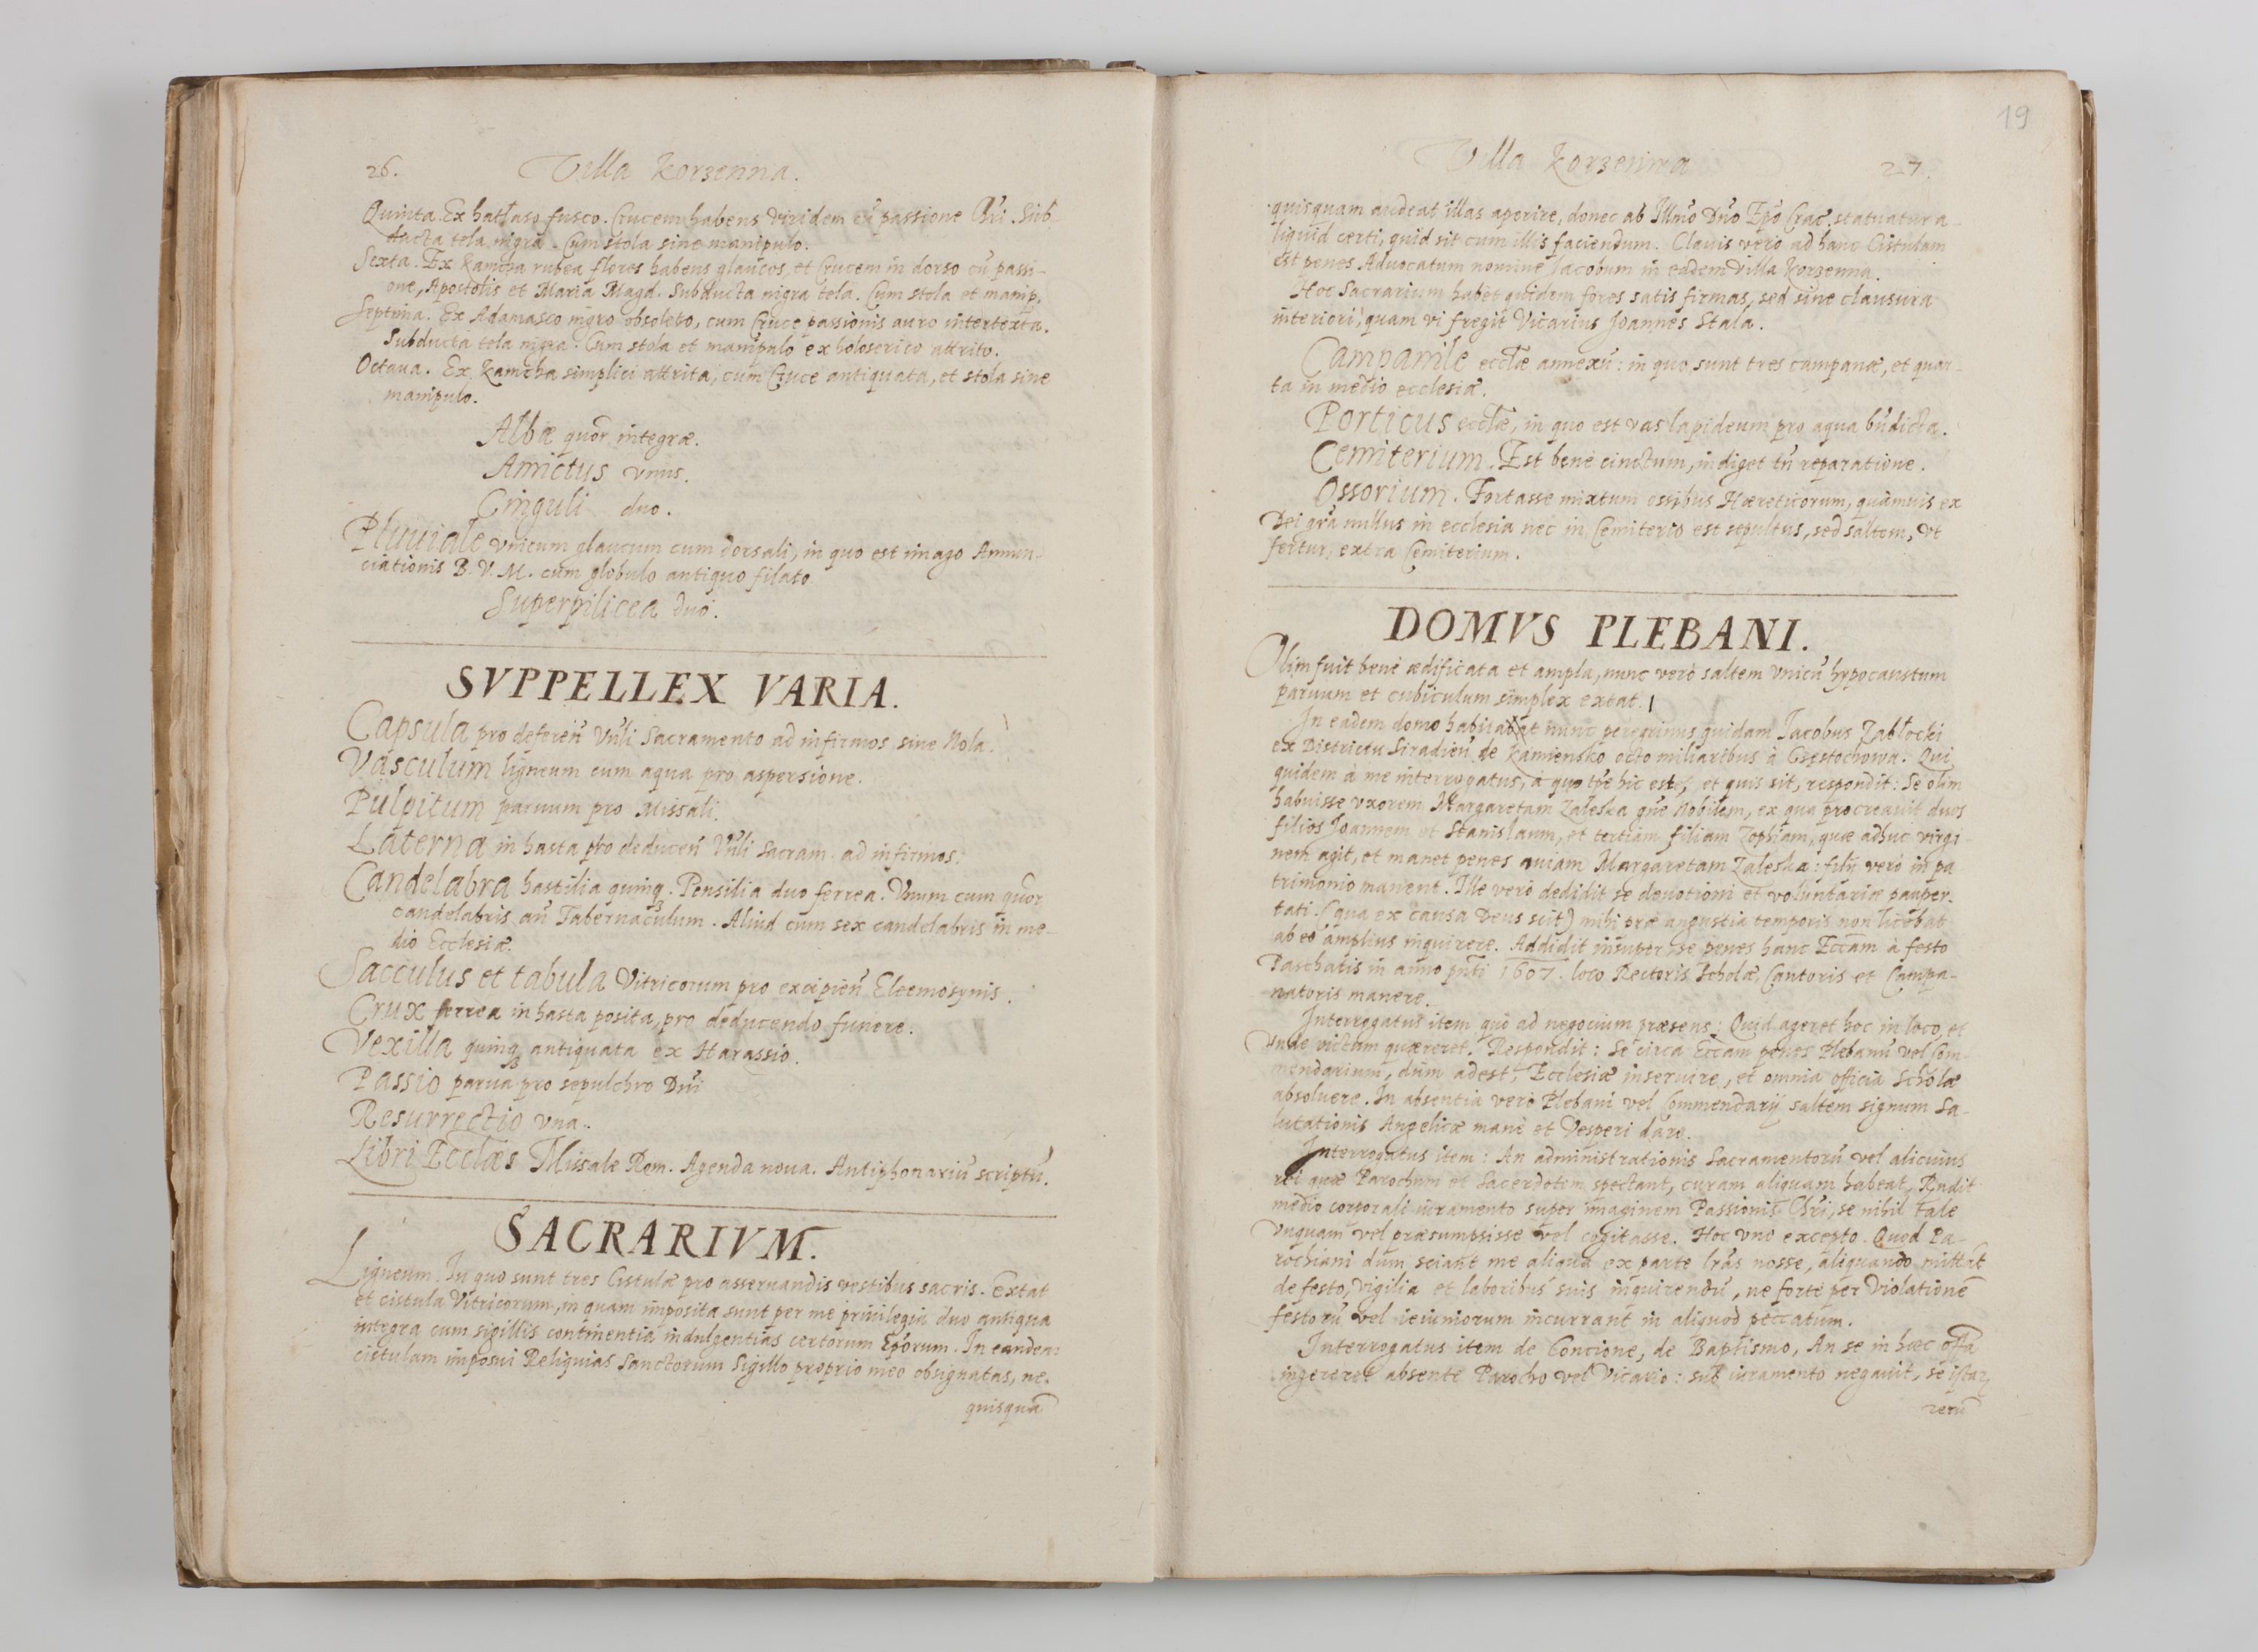 26. Villa Korzenna.
Quinta. Ex hatłaso fusco. Crucem habens viridem cũ passione Chri. Sub-
ducta tela nigra. Cum stola sine manipulo.
Sexta. Ex Kamcha rubea flores habens glaucos, et Crucem in dorso cũ passi-
one, Apostolis et Maria Magd. Subducta nigra tela. Cum stola et manip.
Septima. Ex Adamasco nigro obsoleto, cum Cruce passionis auro intertexta.
Subducta tela nigra. Cum stola et manipulo ex holoserico attrito.
Octaua. Ex Kamcha simplici attrita, cum Cruce antiquata, et stola sine
manipulo.
Albæ quõr integræ.
Amictus vnus.
Cinguli duo.
Pluuiale vnicum glaucum cum dorsali, in quo est imago Annun-
ciationis B. V. M. cum globulo antiquo filato.
Superpilicea duo.
SVPPELLEX VARIA.
Capsula pro deferen̄ Vn̄li Sacramento ad infirmos sine Nola.
Vasculum ligneum cum aqua pro aspersione.
Pulpitum paruum pro Missali.
Laterna in hasta pro deducen̄ Vn̄li Sacram. ad infirmos.
Candelabra hastilia quinq. Pensilia duo ferrea. Vnum cum quõr
candelabris an̄ Tabernaculum. Aliud cum sex candelabris in me-
dio Ecclesiæ.
Sacculus et tabula Vitricorum pro excipien̄ Eleemosynis.
Crux ferrea in hasta posita, pro deducendo funere.
Vexilla quinq antiquata ex Harassio.
Passio parua pro sepulchro Dn̄i
Resurrectio vna.
Libri Eccl̄æs Missale Rom. Agenda noua. Antiphonariũ scriptũ.
SACRARIVM.
Ligneum. In quo sunt tres Cistulæ pro asseruandis vestibus sacris. Extat
et cistula Vitricorum, in quam imposita sunt per me priuilegia duo antiqua
integra cum sigillis continentia indulgentias certorum Ep̄orum. In eandem
cistulam imposui Reliquias Sanctorum Sigillo proprio meo obsignatas, ne.
quisquã
19
Villa Korzenna 27.
quisquam audeat illas aperire, donec ab Illm̄o Dn̄o Ep̄o Crac. statuatur a-
liquid certi, quid sit cum illis faciendum. Clauis verò ad hanc Cistulam
est penes Aduocatum nomine Iacobum in eadem villa Korzenna.
Hoc Sacrarium habet quidem fores satis firmas, sed sine clausura
interiori, quam vi fregit Vicarius Joannes Stala.
Campanile eccl̄æ annexũ: in quo sunt tres campanæ, et quar-
ta in medio ecclesiæ.
Porticus eccl̄æ, in quo est vas lapideum pro aqua bn̄dicta.
Cemiterium. Est bene cinctum, indiget tn̄ reparatione.
Ossorium. Fortasse mixtum ossibus Hæreticorum, quamuis ex
Dei gr̄a nullus in ecclesia nec in Cemiterio est sepultus, sed saltem, vt
fertur, extra Cemiterium.
DOMVS PLEBANI.
Olim fuit benè ædificata et ampla, nunc verò saltem vnicũ hypocaustum
paruum et cubiculum simplex extat.
In eadem domo habitat nunc peregrinus quidam Iacobus Zabłocki
ex Districtu Siradien̄ de Kamiensko octo miliaribus à Częstochowa. Qui
quidem à me interrogatus, à quo tp̄e hic est, et quis sit, respondit: Se olim
habuisse vxorem Margaretam Zaleska gn̄e Nobilem, ex qua procreauit duos
filios Joannem et Stanislaum, et tertiam filiam Zophiam, quæ adhuc virgi-
nem agit, et manet penes auiam Margaretam Zaleska: filij verò in pa
trimonio manent. Ille verò dedidit se deuotioni et voluntariæ pauper-
tati. (qua ex causa Deus scit) mihi præ angustia temporis non licebat
ab eo amplius inquirere. Addidit insuper, se penes hanc Eccãm à festo
Paschatis in anno pn̄ti 1607. loco Rectoris Scholæ, Cantoris et Campa-
natoris manere.
Interrogatus item quo ad negocium præsens: Quid ageret hoc in loco, et
vnde victum quæreret. Respondit: Se circa Eccãm penes Plebanũ vel Com-
mendarium, dum adest, Ecclesiæ inseruire, et omnia officia Scholæ
absoluere. In absentia verò Plebani vel Commendarij saltem signum Sa-
lutationis Angelicæ manè et Vesperi dare.
Interrogatus item: An administrationis Sacramentorũ vel alicuius
rei quæ Parochum et Sacerdotem spectant, curam aliquam habeat, Rn̄dit
medio corporali iuramento super imaginem Passionis Chr̄i, se nihil tale
vnquam vel præsumpsisse vel cogitasse. Hoc vno excepto. Quod Pa-
rochiani dum sciant me aliqua ex parte lr̄as nosse, aliquando mittãt
de festo, vigilia et laboribus suis inquirendũ, ne fortè per violationẽ
festorũ vel ieiuniorum incurrant in aliquod peccatum.
Interrogatus item de Concione, de Baptismo, An se in hæc off̄a
ingereret absente Parocho vel Vicario: sub iuramento negauit, se istaꝝ
rerũ